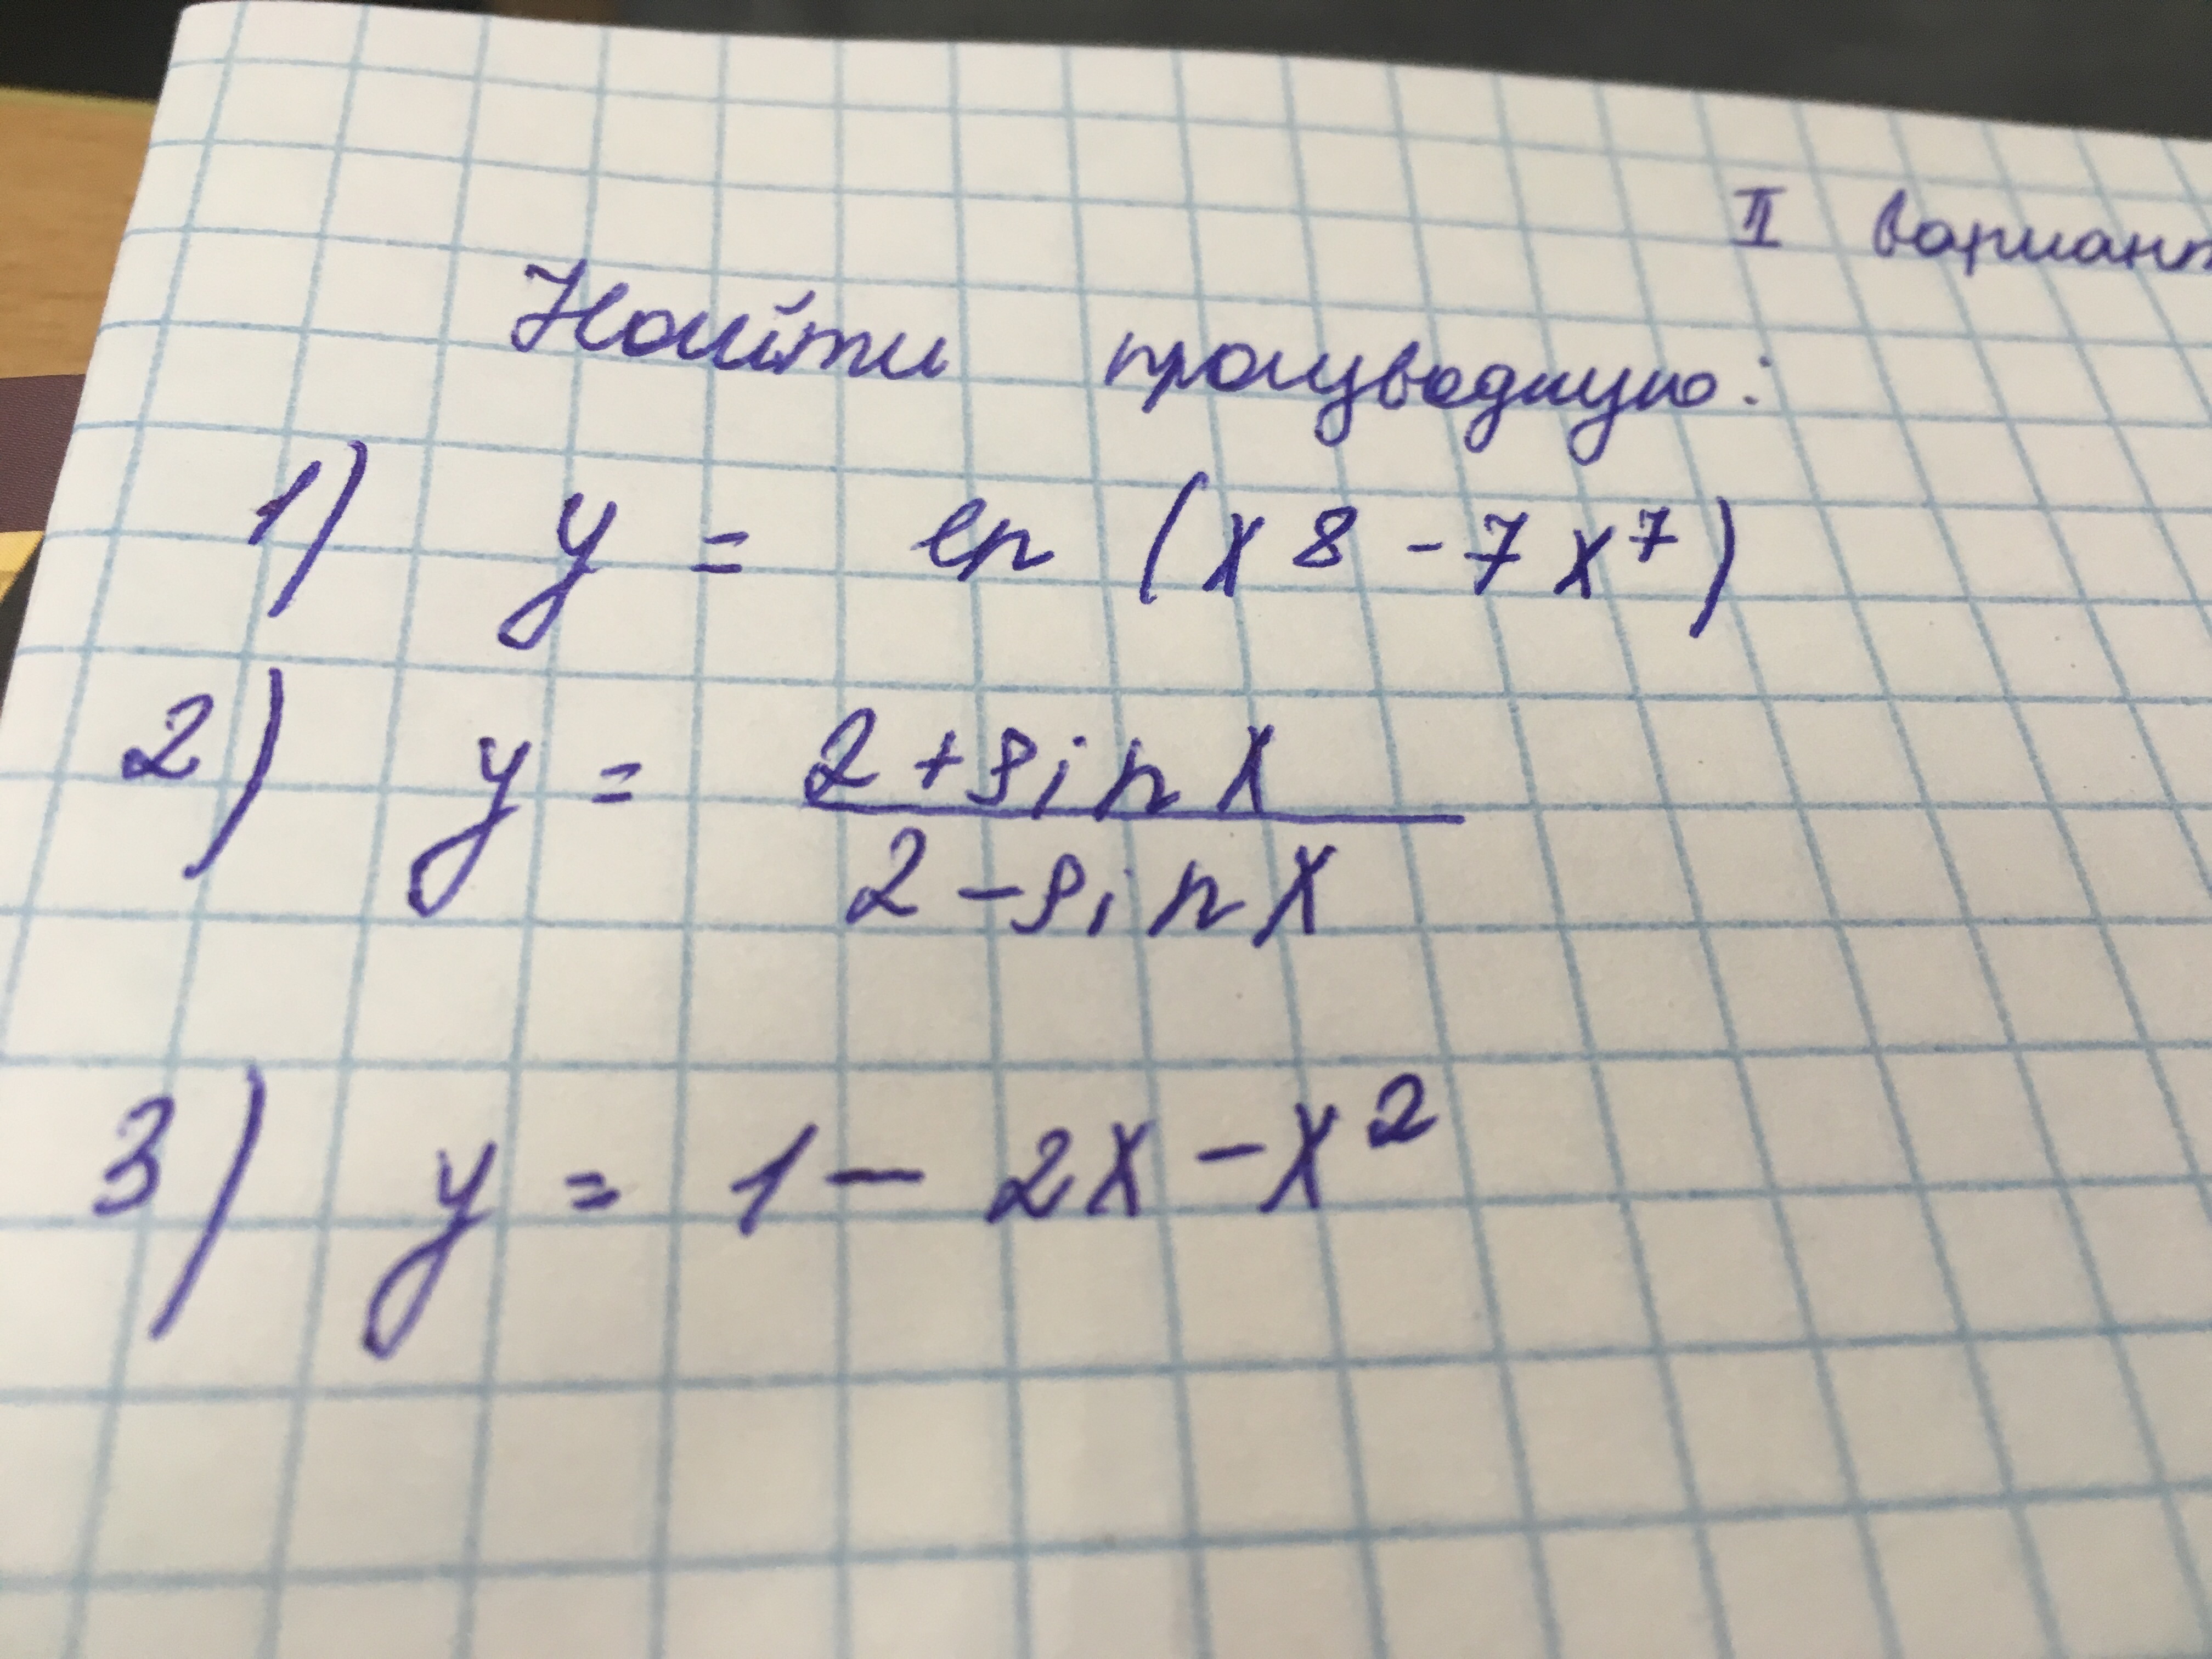 II вариант
Найти производную:
1) y = ln (x⁸ - 7x⁷)
2) y = 2 + sin x
2 - sin x
3) y = 1 - 2x - x²